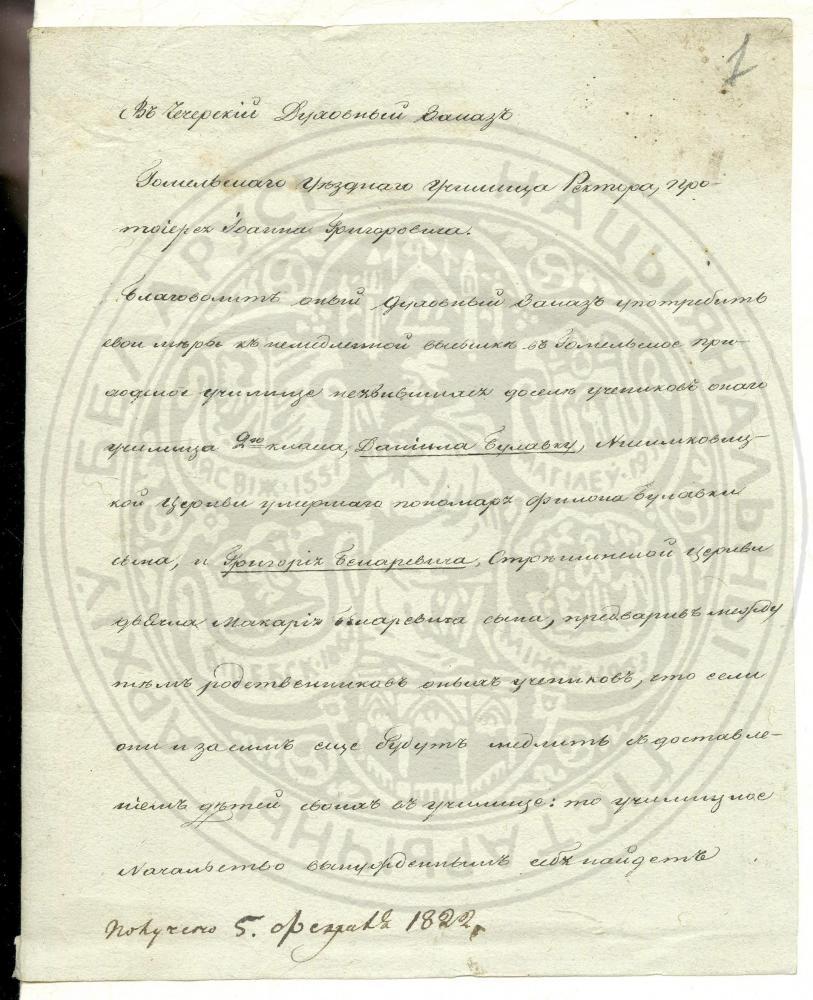 1
Въ Чечерскій Духовный Заказъ
Гомельскаго Уѣзднаго Училища Ректора, про-
тоіерея Іоанна Григоровича.
Благоволитъ оный Духовный Заказъ употребить
свои мѣры къ немедленной высылкѣ въ Гомельское при-
ходское училище неявившихся доселѣ учениковъ онаго
училища 2го класса, Даніила Булавку,
кой Церкви умершаго пономаря Филона Булавки
сына, и Григорія Бекаревича, Стрѣшинской церкви
дьячка Макарія Бекаревича сына, предваривъ между
тѣмъ родственниковъ оныхъ учениковъ, что если
они и засимъ еще будутъ медлить доставле-
ніемъ дѣтей своихъ въ училище: то училищное
Начальство вынужденнымъ себя найдетъ
Получено 5. Февраля 1822.